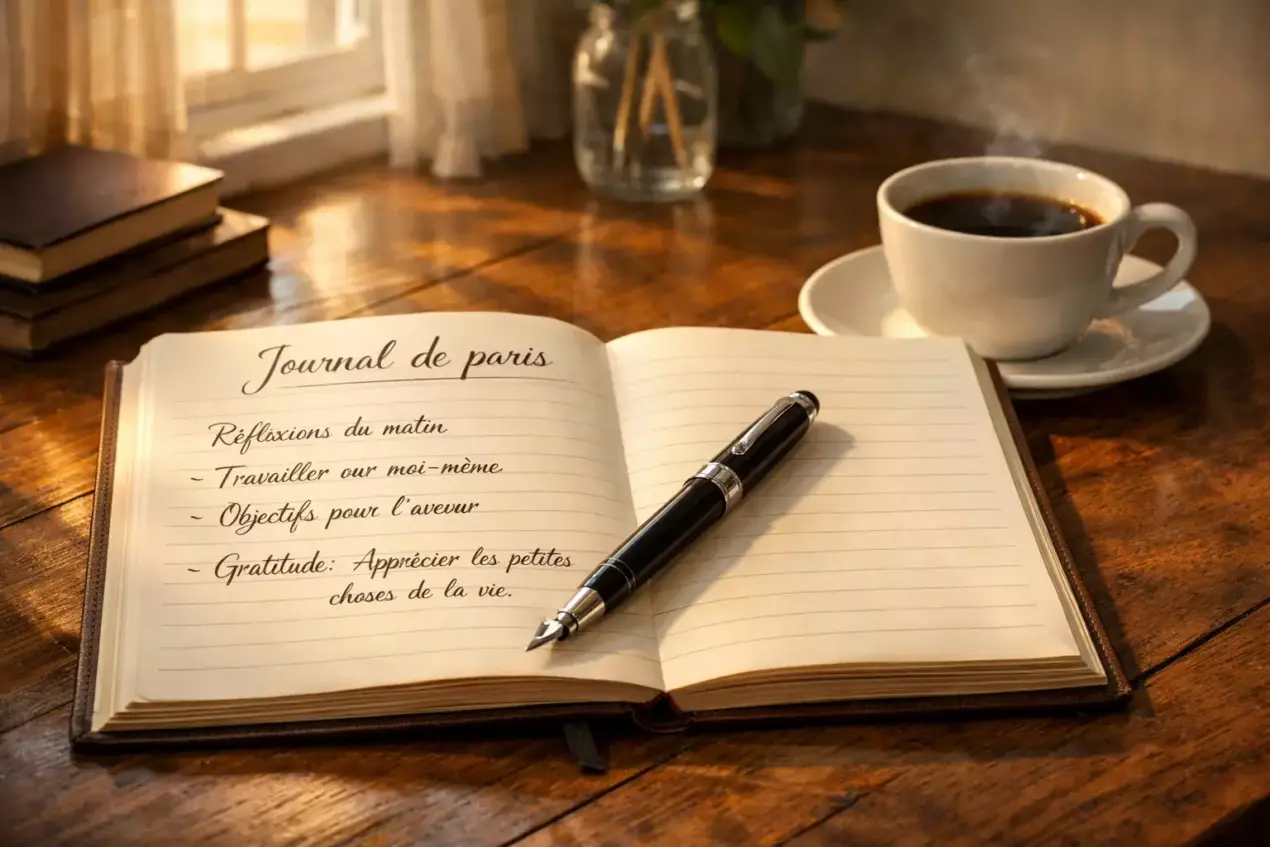 Journal de paris
Réflixions du matin
- Travailler our moi-même
- Objectifs pour l'aveur
- Gratitude: Apprécier les petites
choses de la vie.